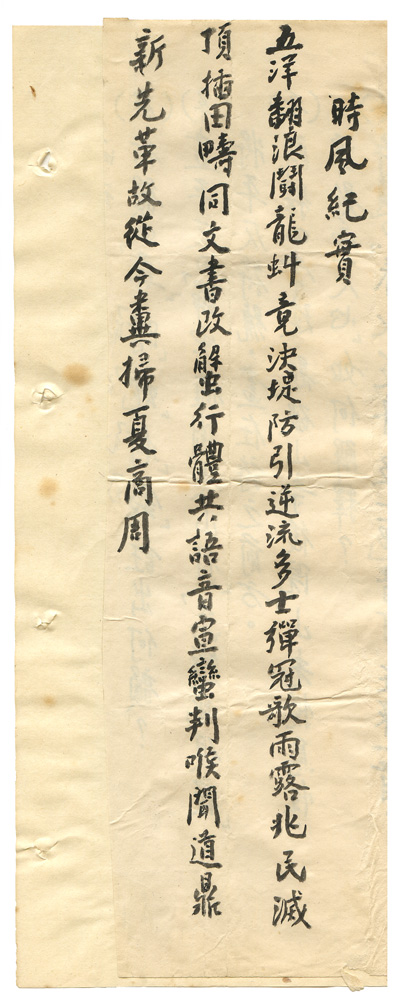 時風紀實
五洋翻浪鬪龍虯竟決堤防引逆流多士彈冠歌雨露兆民滅
頂插田疇同文書改蟹行體共語音宣蠻判喉聞道鼎
新先革故從今糞掃夏商周